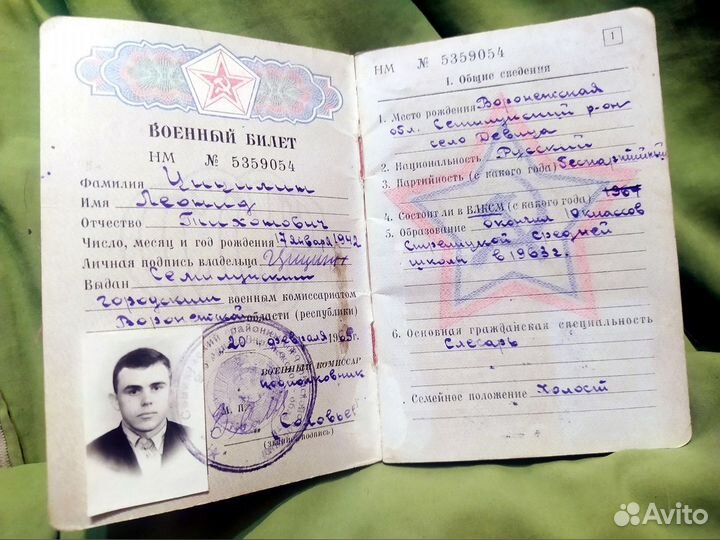 ВОЕННЫЙ БИЛЕТ
НМ № 5359054
Фамилия Цицилин
Имя Леонид
Отчество Тихонович
Число, месяц и год рождения 17 января 1942
Личная подпись владельца
Выдан Семилукским
городским военным комиссариатом
Воронежской области (республики)
20 февраля 1965г.
ВОЕННЫЙ КОМИССАР
подполковник
М. П.
Соловьев
(звание, подпись)
НМ № 5359054
1
I. Общие сведения
1. Место рождения Воронежская
обл. Семилукский р-он
село Девица
2. Национальность Русский
3. Партийность (с какого года) беспартийный
4. Состоит ли в ВЛКСМ (с какого года)
5. Образование окончил 10 классов
Стрелицкой средней
школы в 1963г.
6. Основная гражданская специальность
Слесарь
Семейное положение Холост
Avito